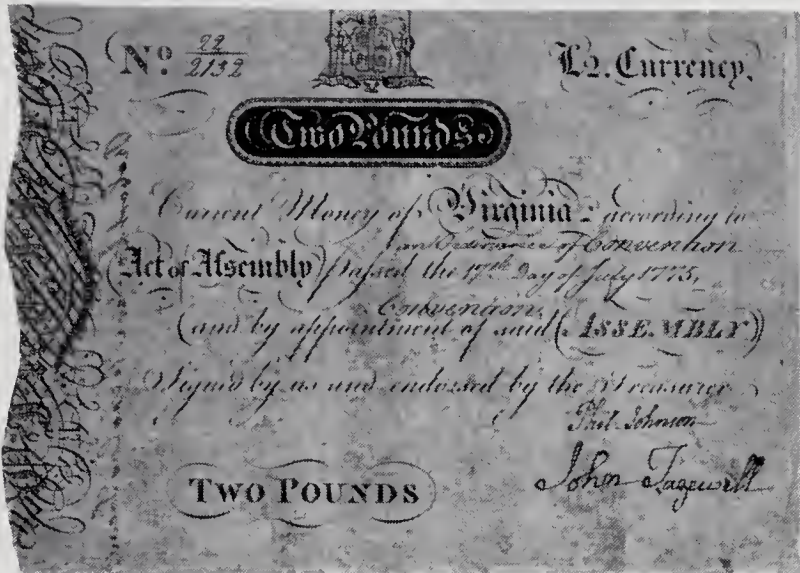 No 22/2132
L2. Currency.
Two Pounds
Current Money of Virginia according to
an Ordinance of Convention
Act of Assembly passed the 17th Day of July 1775,
Convention
(and by appointment of said (ASSEMBLY))
Signed by us and endorsed by the Treasurer
Phil. Johnson
TWO POUNDS
John Tazewell